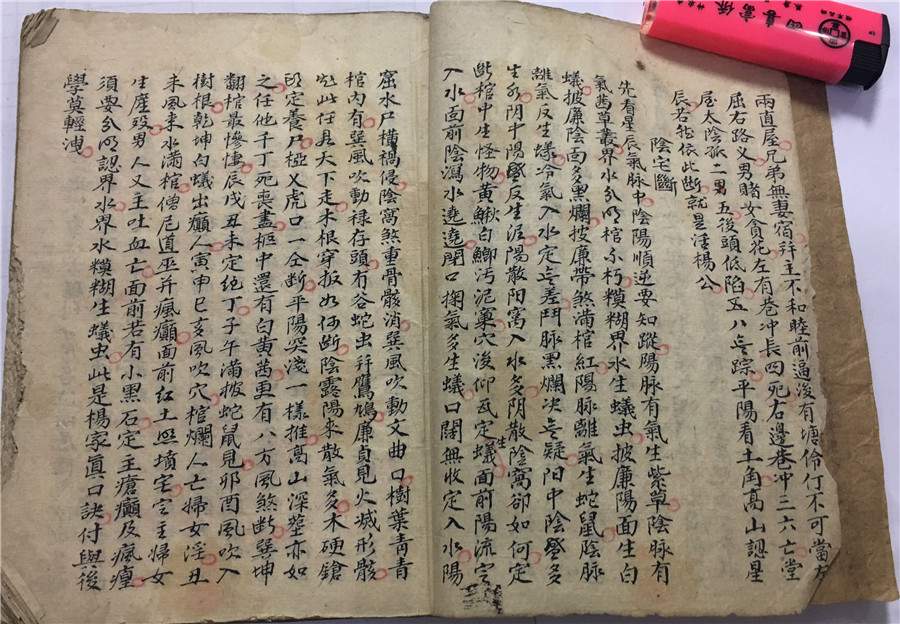 兩直屋兄弟無妻宿弄主不和睦前逼後有塘伶仃不可當左
屈右路义男賭女貪花左有巷冲長四死右邊巷冲三六亡堂
屋太陰孤二男五後頭低陷五八无踪平陽看土角高山認星
辰若能依此断就是活楊公
陰宅斷
先看星辰氣脉中陰陽順逆要知蹤陽脉有氣生紫草陰脉有
氣茜草叢界水分明棺不朽糢糊界水生蟻虫披廉陽面生白
蟻披廉陰面多黑爛披廉帶煞滿棺紅陽脉離氣生蛇鼠陰脉
離氣反生蟻冷氣入水定无差鬥脉黑爛决无疑阳中陰盛多
生阴中陽盛反生泥陽散阳窩入水多阴散陰窩卻如何定
断棺中生怪物黄鰍白鱔汚泥窠穴後仰瓦定生蟻面前陽流定
入水面前陰瀉水遶遶開口掬氣多生蟻口闊無收定入水陽
窟水尸橫禍侵陰窩煞重骨骸消巽風吹動文曲口樹葉青青
棺内有巽風吹動祿存頭有谷蛇虫并鷹鳩廉貞見火滅形骸
此任是天下走木根穿板如何断陰露陽來散氣多木硬鎗
头定養尸椏义虎口一仝断平陽突淺一樣推高山深葬亦如
之任他千丁死喪盡柩中還有白黄茜更有八方風煞断巽坤
翻棺最慘悽辰戌丑未定絕丁子午滿棺蛇鼠見卯酉風吹入
樹根乾坤白蟻出癲人寅申巳亥風吹穴棺爛人亡婦女淫丑
未風來水滿棺僧尼道巫并瘋癲面前紅土照墳宅定主婦女
生產殁男人又主吐血亡面前若有小黑石定主瘡癲及瘋癀
須要分明認界水界水糢糊生蟻虫此是楊家眞口訣付與後
學莫輕洩